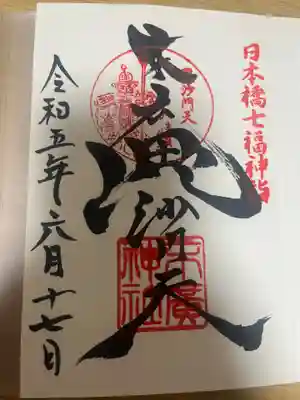 日本橋七福神詣
毘沙門天
末廣
毘沙門天
末廣
神社
令和五年六月十七日